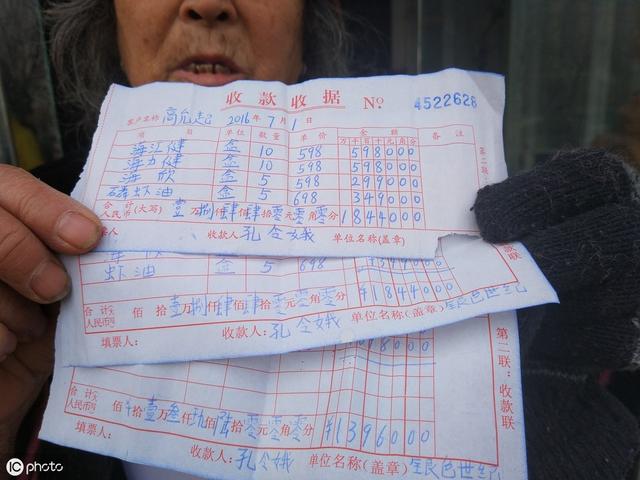 收款收据 No 4522626
客户名称 高允起 2016年7月1日
项目 单位 数量 单价 金额 备注
万千百十元角分
海江健 盒 10 598 598000
海力健 盒 10 598 598000
海欣 盒 5 598 299000
磷虾油 盒 5 698 349000
合计人民币(大写) 壹万捌仟肆佰肆拾零元零角零分 1844000
收款人 孔令娥 单位名称(盖章)
第二联:
虾油 盒 5 698 349000
合计人民币 佰 拾壹万捌仟肆佰肆拾零元零角零分 ¥1844000
填票人: 收款人: 孔令娥 单位名称(盖章) 银色世纪
合计人民币 佰 拾壹万叁仟玖佰陆拾零元零角零分 ¥1396000
填票人: 收款人: 孔令娥 单位名称(盖章) 银色世纪
第二联:收款联
ic photo